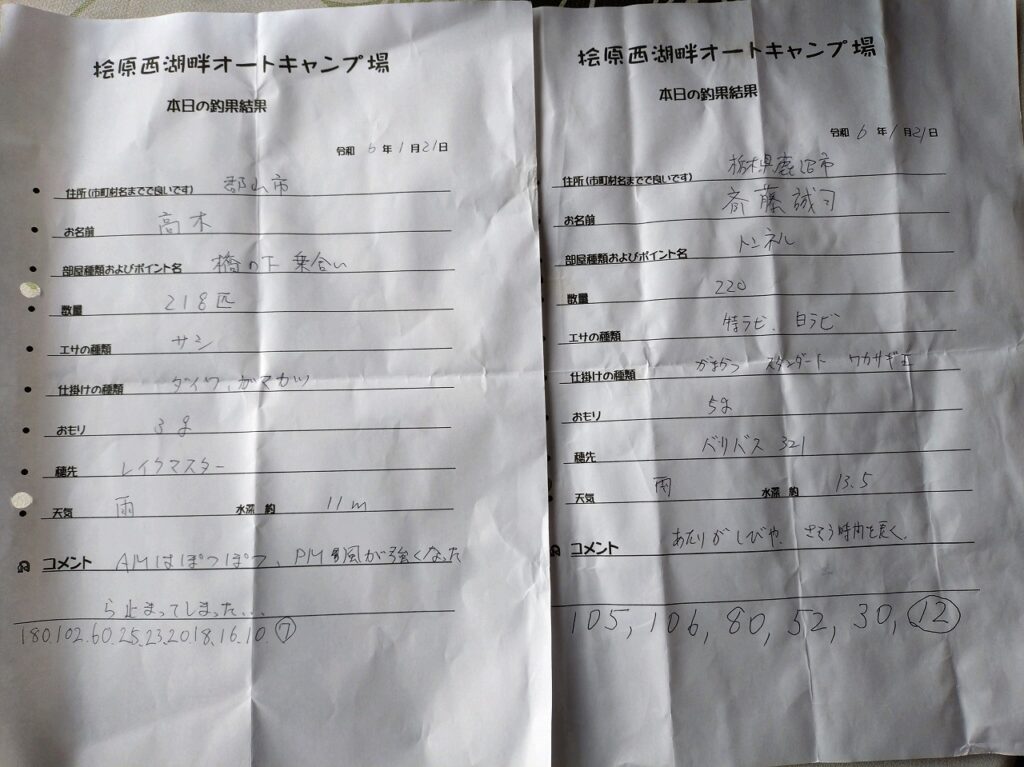 桧原西湖畔オートキャンプ場
本日の釣果結果
令和 6 年 1 月 21 日
住所(市町村名までで良いです) 郡山市
お名前 高木
部屋種類およびポイント名 橋の下 乗合い
数量 218匹
エサの種類 サシ
仕掛けの種類 ダイワ、ガマカツ
おもり 3g
穂先 レイクマスター
天気 雨 水深 約 11m
コメント AMはぽつぽつ、PM 風が強くなった
ら止まってしまった...
180.102.60.25.23.20.18.16.10.⑦
桧原西湖畔オートキャンプ場
本日の釣果結果
令和 6 年 1 月 21 日
住所(市町村名までで良いです) 栃木県鹿沼市
お名前 斉藤誠司
部屋種類およびポイント名 トンネル
数量 220
エサの種類 特ラビ、白ラビ
仕掛けの種類 がまかつ スタンダート ワカサギ王
おもり 5g
穂先 バリバス 321
天気 雨 水深 約 13.5
コメント あたりがしびや、さそう時間を長く、
105, 106, 80, 52, 30, ⑫